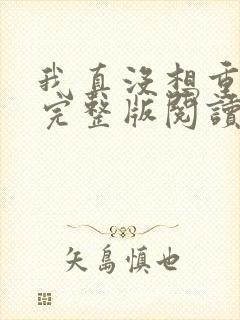 我真没想重
完整版閱讀
矢島慎也